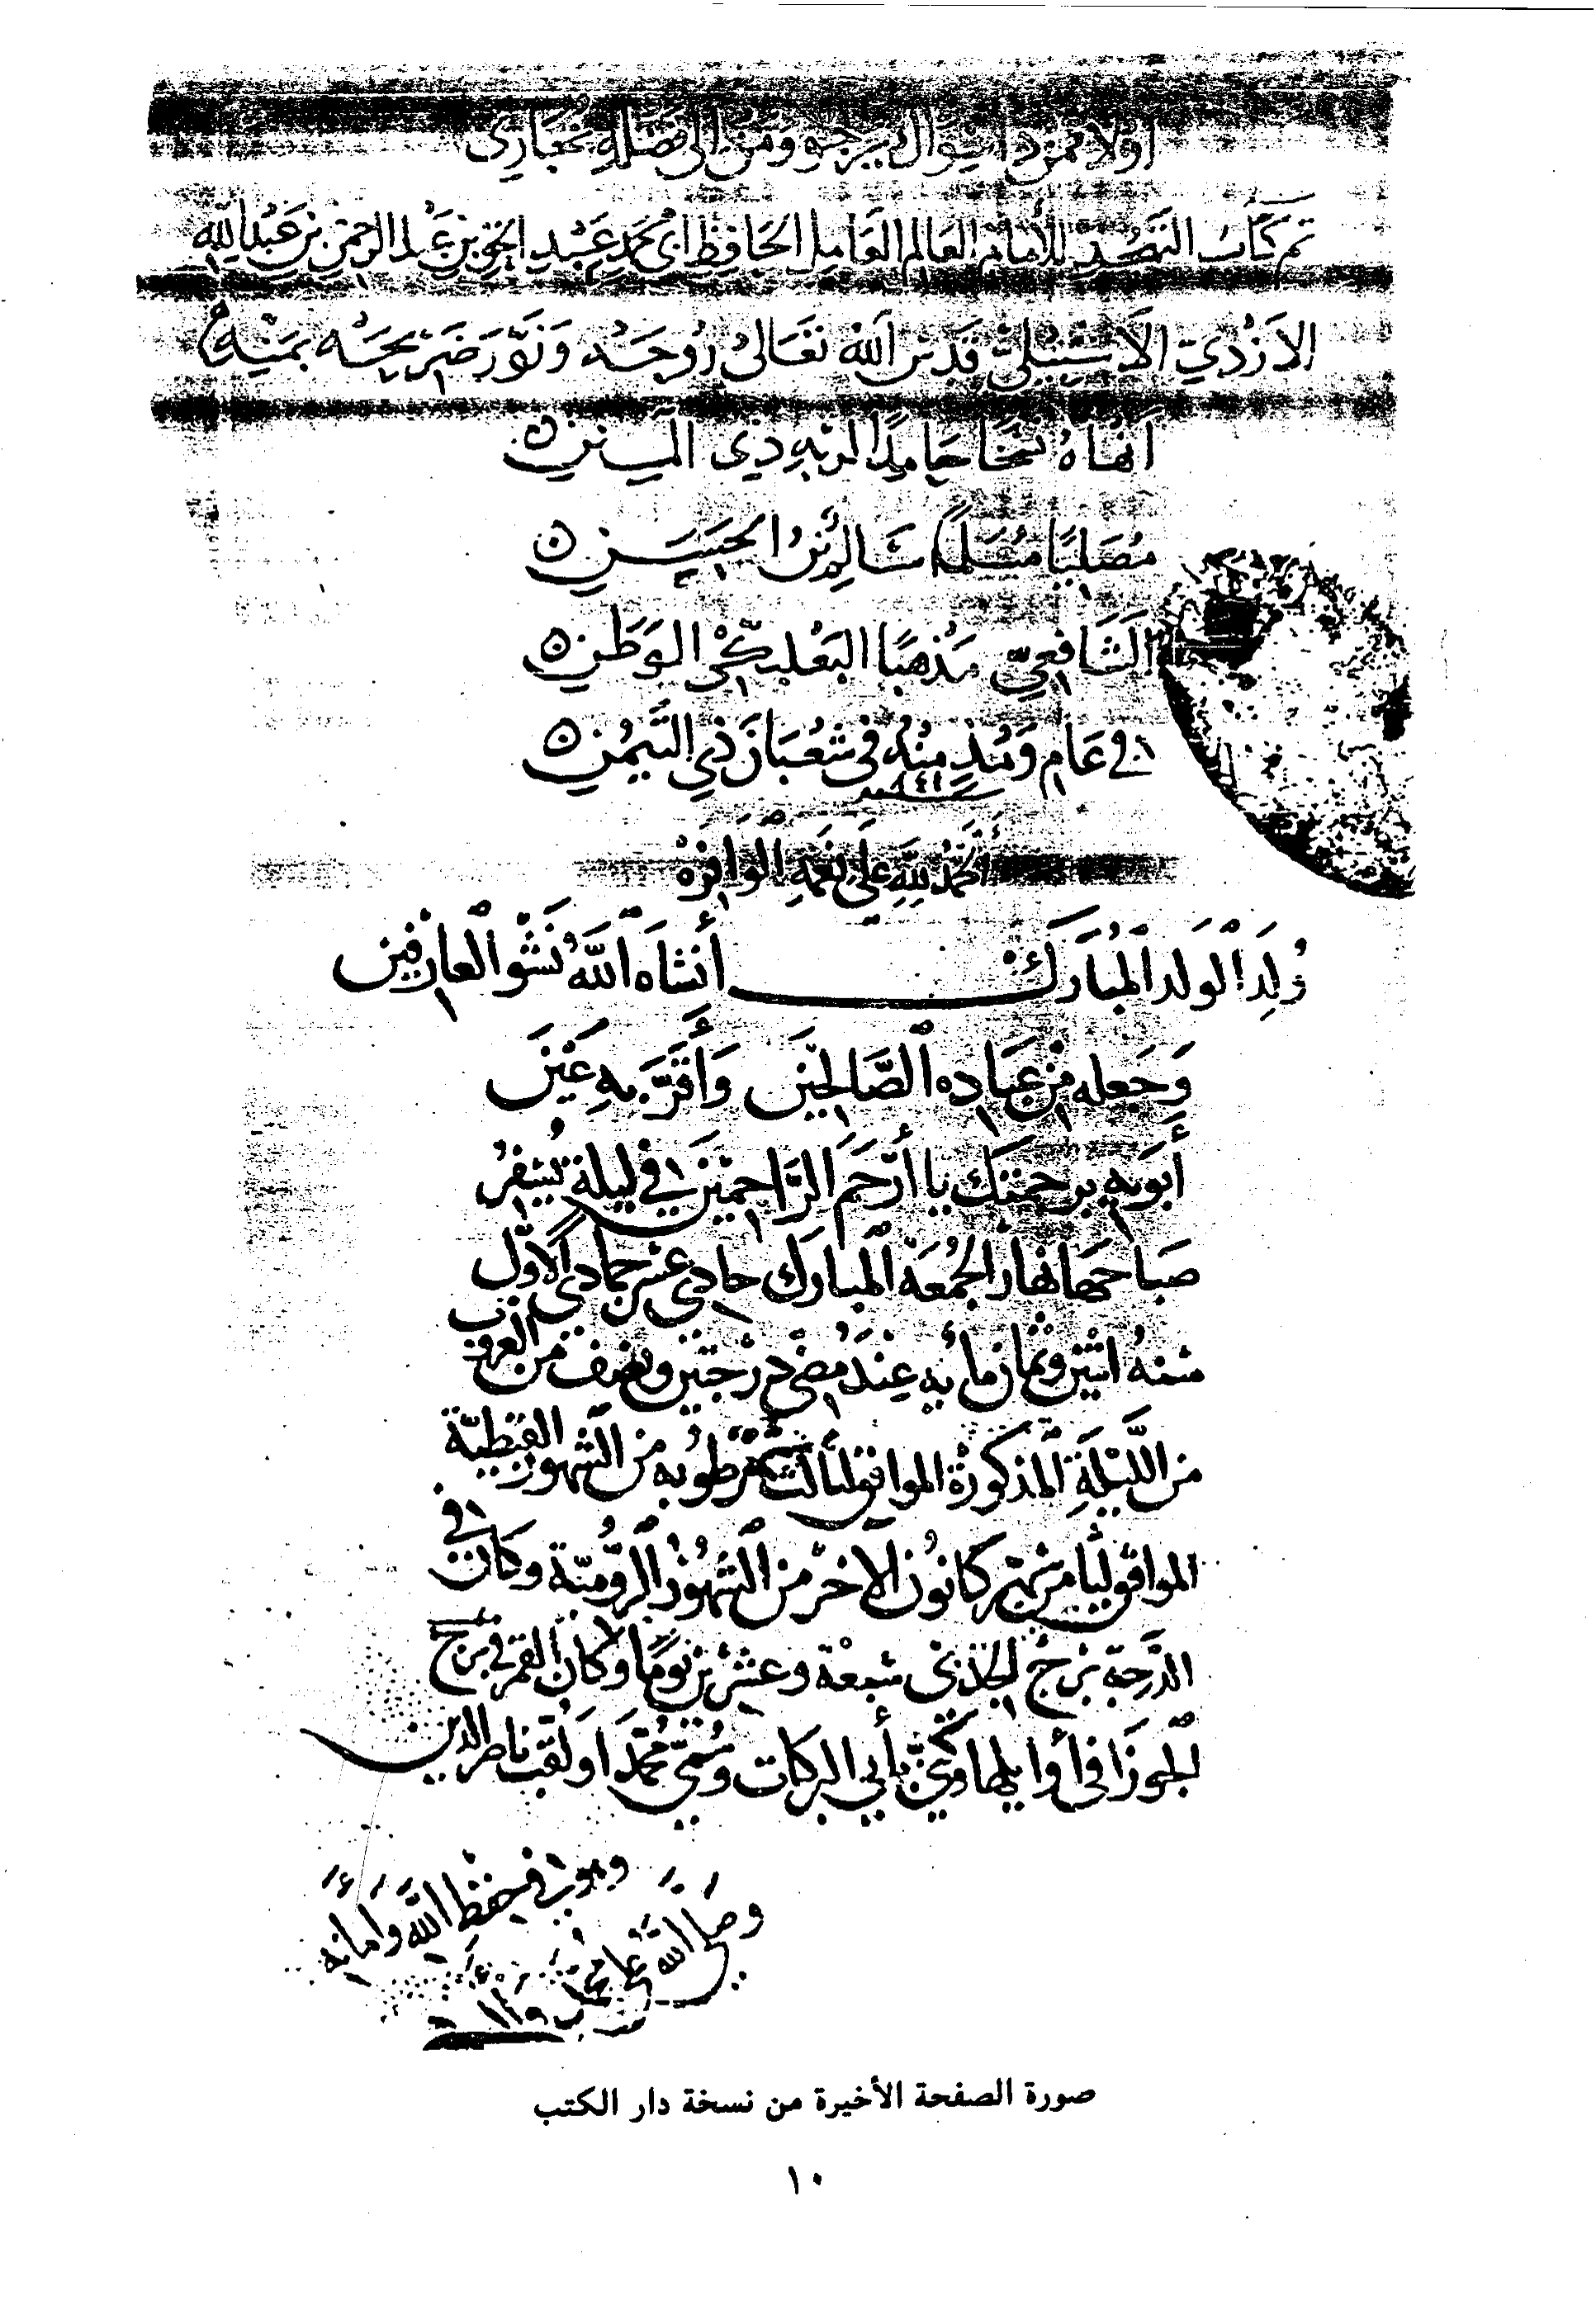 تم كتاب التهجد للامام العالم العامل الحافظ ابي محمد عبد الحق بن عبد الرحمن بن عبد الله
الازدي الاشبيلي قدس الله تعالى روحه ونور ضريحه بمنه
انهاه نسخا حامدا لربه ذي المنن
مصليا مسلما
الشافعي مذهبا البعلبكي الوطن
في عام ومنذ منه في شعبان ذي اليمن
الحمد لله على نعمه الوافرة
ولد الولد المبارك أنشاه الله نشو العارفين
وجعله من عباده الصالحين وأقر به عين
أبويه برحمتك يا أرحم الراحمين في ليلة تسفر
صباحها نهار الجمعة المبارك حادي عشر جمادي الاول
سنة اثنين وثمان مأيه عند مضي درجتين ونصف من الغروب
من الليلة المذكورة الموافق لثالث طوبه من الشهور القبطية
الموافق لثامن شهر كانون الآخر من الشهور الرومية وكانت في
الدرجة برج الجدي سبعة وعشرين يوما وكان القمر في برج
الجوزا في أوايلها وكني بأبي البركات وسمي محمدا ولقب ناصر الدين
وهو في حفظ الله وأمانه
وصلى الله على محمد
صورة الصفحة الأخيرة من نسخة دار الكتب
١٠